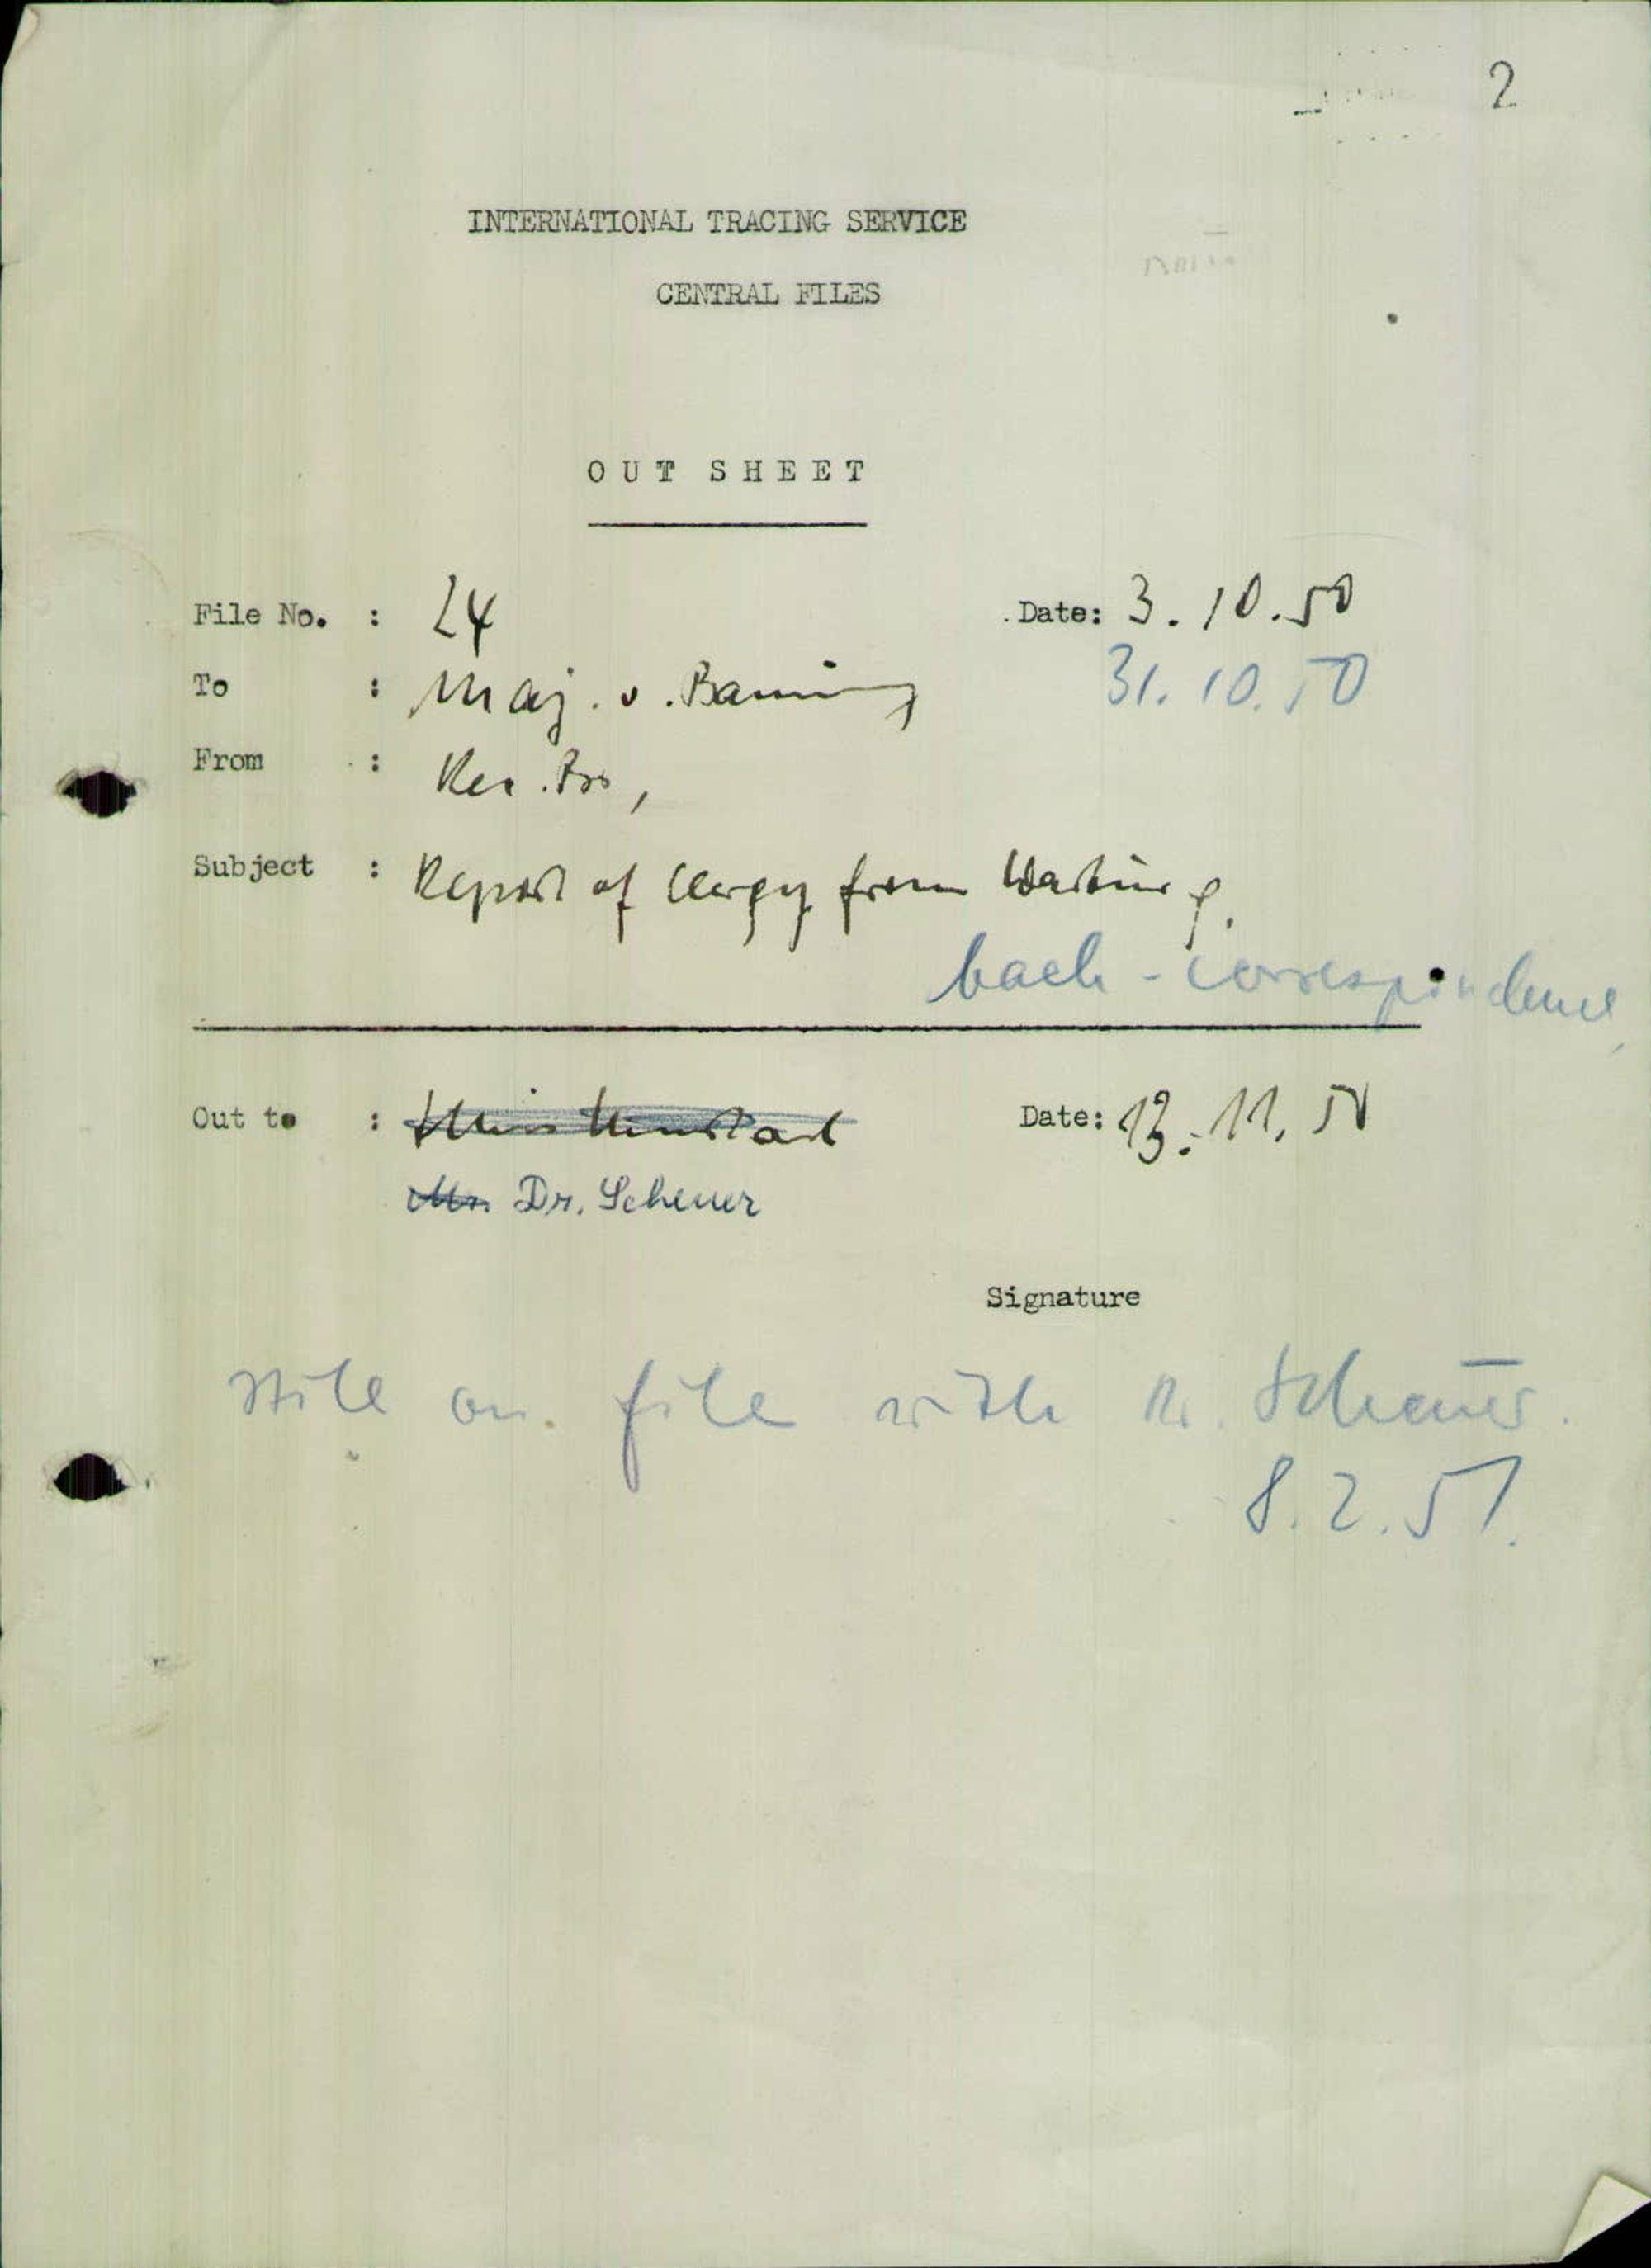 2
INTERNATIONAL TRACING SERVICE
CENTRAL FILES
OUT SHEET
File No. : 24 Date: 3.10.50
To : Maj. v. Banning 31.10.50
From :
Subject : Report of Clergy from
back-correspondence
Out to : Miss Date: 13.11.50
Mr. Dr. Scheuer
Signature
still on file with Dr. Scheuer.
8.2.51.